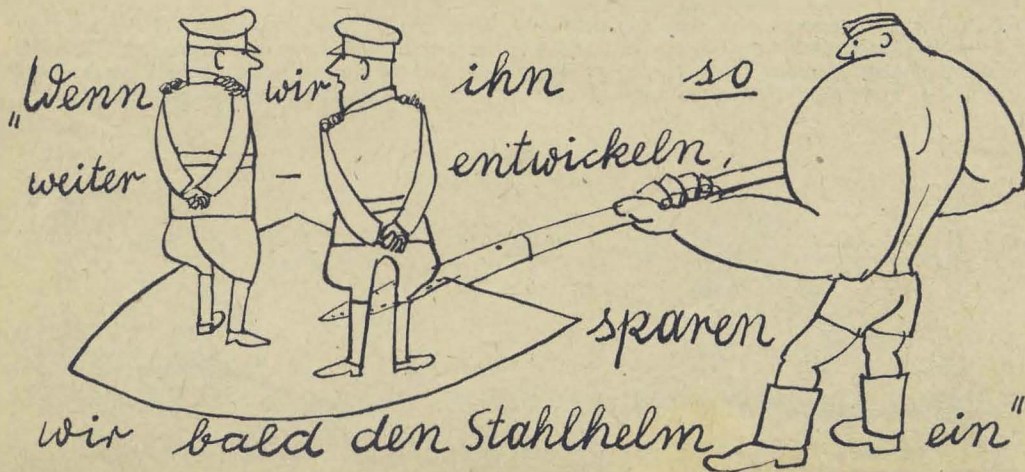 „Wenn wir ihn so
weiter - entwickeln,
sparen
wir bald den Stahlhelm ein“